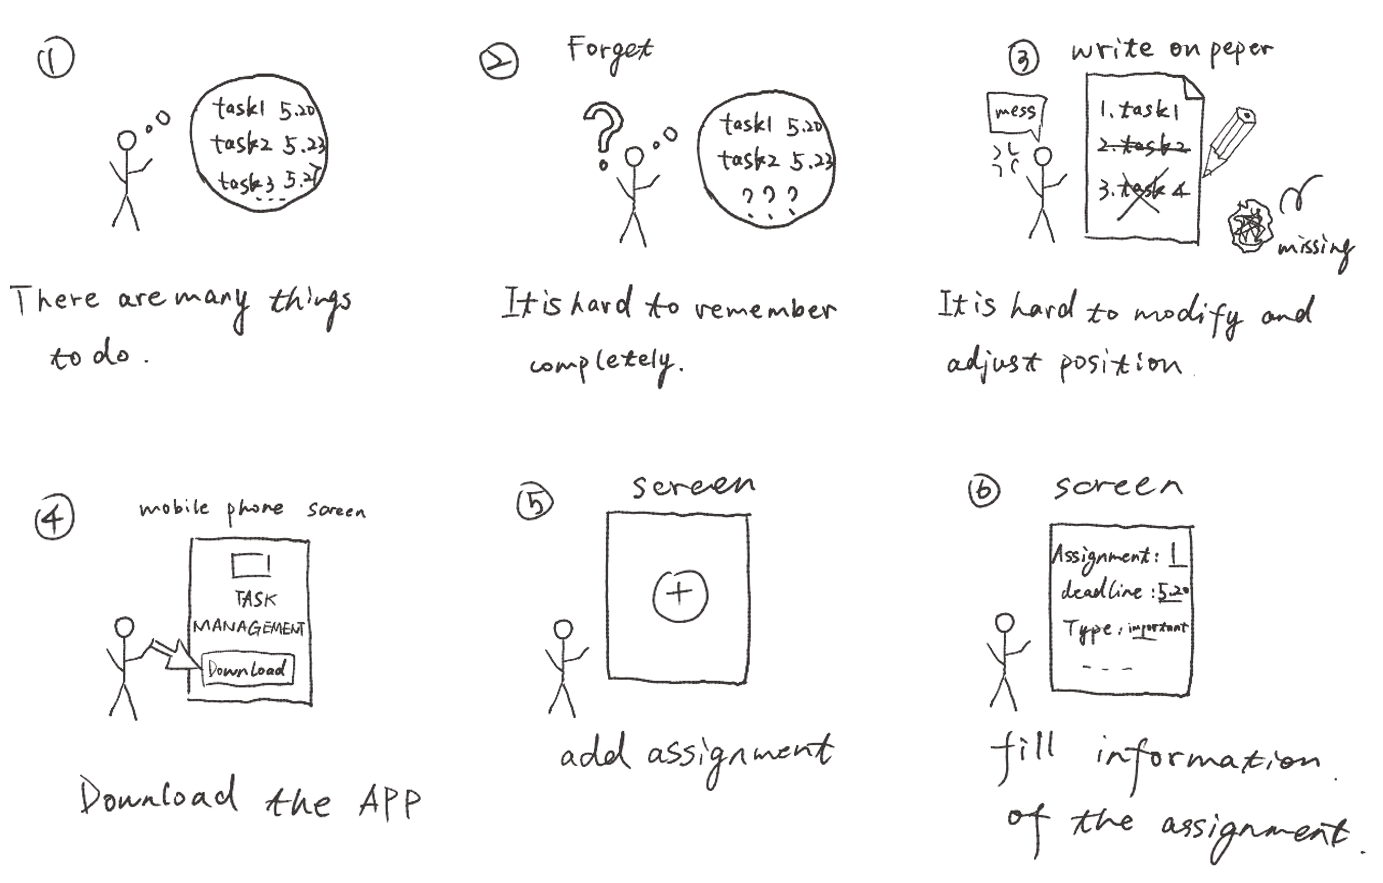 ①
task1 5.20
task2 5.23
task3 5.25
...
There are many things
to do.
②
Forget
?
task1 5.20
task2 5.23
???
It is hard to remember
completely.
③
write on peper
mess
1. task1
2. task2
3. task 4
missing
It is hard to modify and
adjust position.
④
mobile phone screen
TASK
MANAGEMENT
Download
Download the APP
⑤
screen
+
add assignment
⑥
screen
Assignment: 1
deadline: 5.20
Type: important
- - -
fill information
of the assignment.